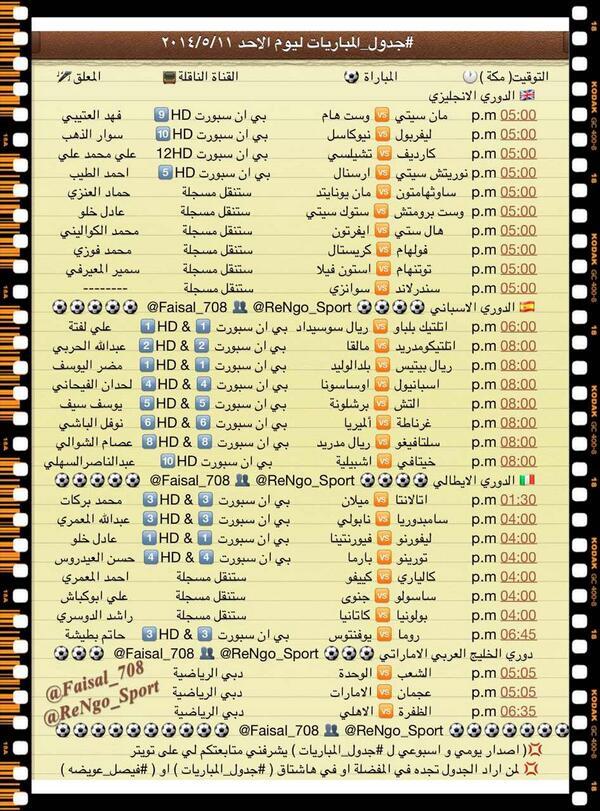 #جدول_المباريات ليوم الاحد ٢٠١٤/٥/١١
التوقيت( مكة ) المباراة القناة الناقلة المعلق
الدوري الانجليزي
05:00 p.m مان سيتي vs وست هام بي ان سبورت HD 9 فهد العتيبي
05:00 p.m ليفربول vs نيوكاسل بي ان سبورت HD 10 سوار الذهب
05:00 p.m كارديف vs تشيلسي بي ان سبورت 12HD علي محمد علي
05:00 p.m نوريتش سيتي vs ارسنال بي ان سبورت HD 5 احمد الطيب
05:00 p.m ساوثهامتون vs مان يونايتد ستنقل مسجلة حماد العنزي
05:00 p.m وست برومتش vs ستوك سيتي ستنقل مسجلة عادل خلو
05:00 p.m هال ستي vs ايفرتون ستنقل مسجلة محمد الكواليني
05:00 p.m فولهام vs كريستال ستنقل مسجلة محمد فوزي
05:00 p.m توتنهام vs استون فيلا ستنقل مسجلة سمير المعيرفي
05:00 p.m سندرلاند vs سوانزي ستنقل مسجلة --------
الدوري الاسباني @ReNgo_Sport @Faisal_708
06:00 p.m اتلتيك بلباو vs ريال سوسيداد بي ان سبورت 1 & HD 1 علي لفتة
08:00 p.m اتلتيكومدريد vs مالقا بي ان سبورت 2 & HD 2 عبدالله الحربي
08:00 p.m ريال بيتيس vs بلدالوليد بي ان سبورت 1 & HD 1 مضر اليوسف
08:00 p.m اسبانيول vs اوساسونا بي ان سبورت 4 & HD 4 لحدان الفيحاني
08:00 p.m التش vs برشلونة بي ان سبورت 5 & HD 5 يوسف سيف
08:00 p.m غرناطة vs ألميريا بي ان سبورت 6 & HD 6 نوفل الباشي
08:00 p.m سلتافيغو vs ريال مدريد بي ان سبورت 8 & HD 8 عصام الشوالي
08:00 p.m خيتافي vs اشبيلية بي ان سبورت HD 10 عبدالناصرالسهلي
الدوري الايطالي @ReNgo_Sport @Faisal_708
01:30 p.m اتالانتا vs ميلان بي ان سبورت 3 & HD 3 محمد بركات
04:00 p.m سامبدوريا vs نابولي بي ان سبورت 3 & HD 3 عبدالله المعمري
04:00 p.m ليفورنو vs فيورنتينا بي ان سبورت 1 & HD 1 عادل خلو
04:00 p.m تورينو vs بارما بي ان سبورت 4 & HD 4 حسن العيدروس
04:00 p.m كالياري vs كييفو ستنقل مسجلة احمد المعمري
04:00 p.m ساسولو vs جنوى ستنقل مسجلة علي ابوكباش
04:00 p.m بولونيا vs كاتانيا ستنقل مسجلة راشد الدوسري
06:45 p.m روما vs يوفنتوس بي ان سبورت 3 & HD 3 حاتم بطيشة
دوري الخليج العربي الاماراتي @ReNgo_Sport @Faisal_708
05:05 p.m الشعب vs الوحدة دبي الرياضية
05:05 p.m عجمان vs الامارات دبي الرياضية
06:35 p.m الظفرة vs الاهلي دبي الرياضية
@Faisal_708
@ReNgo_Sport
@ReNgo_Sport @Faisal_708
( اصدار يومي و اسبوعي ل #جدول_المباريات ) يشرفني متابعتكم لي على تويتر
لمن اراد الجدول تجده في المفضلة او في هاشتاق ( #جدول_المباريات ) او ( #فيصل_عويضه )
18
KODAK
GC 400-8
18A